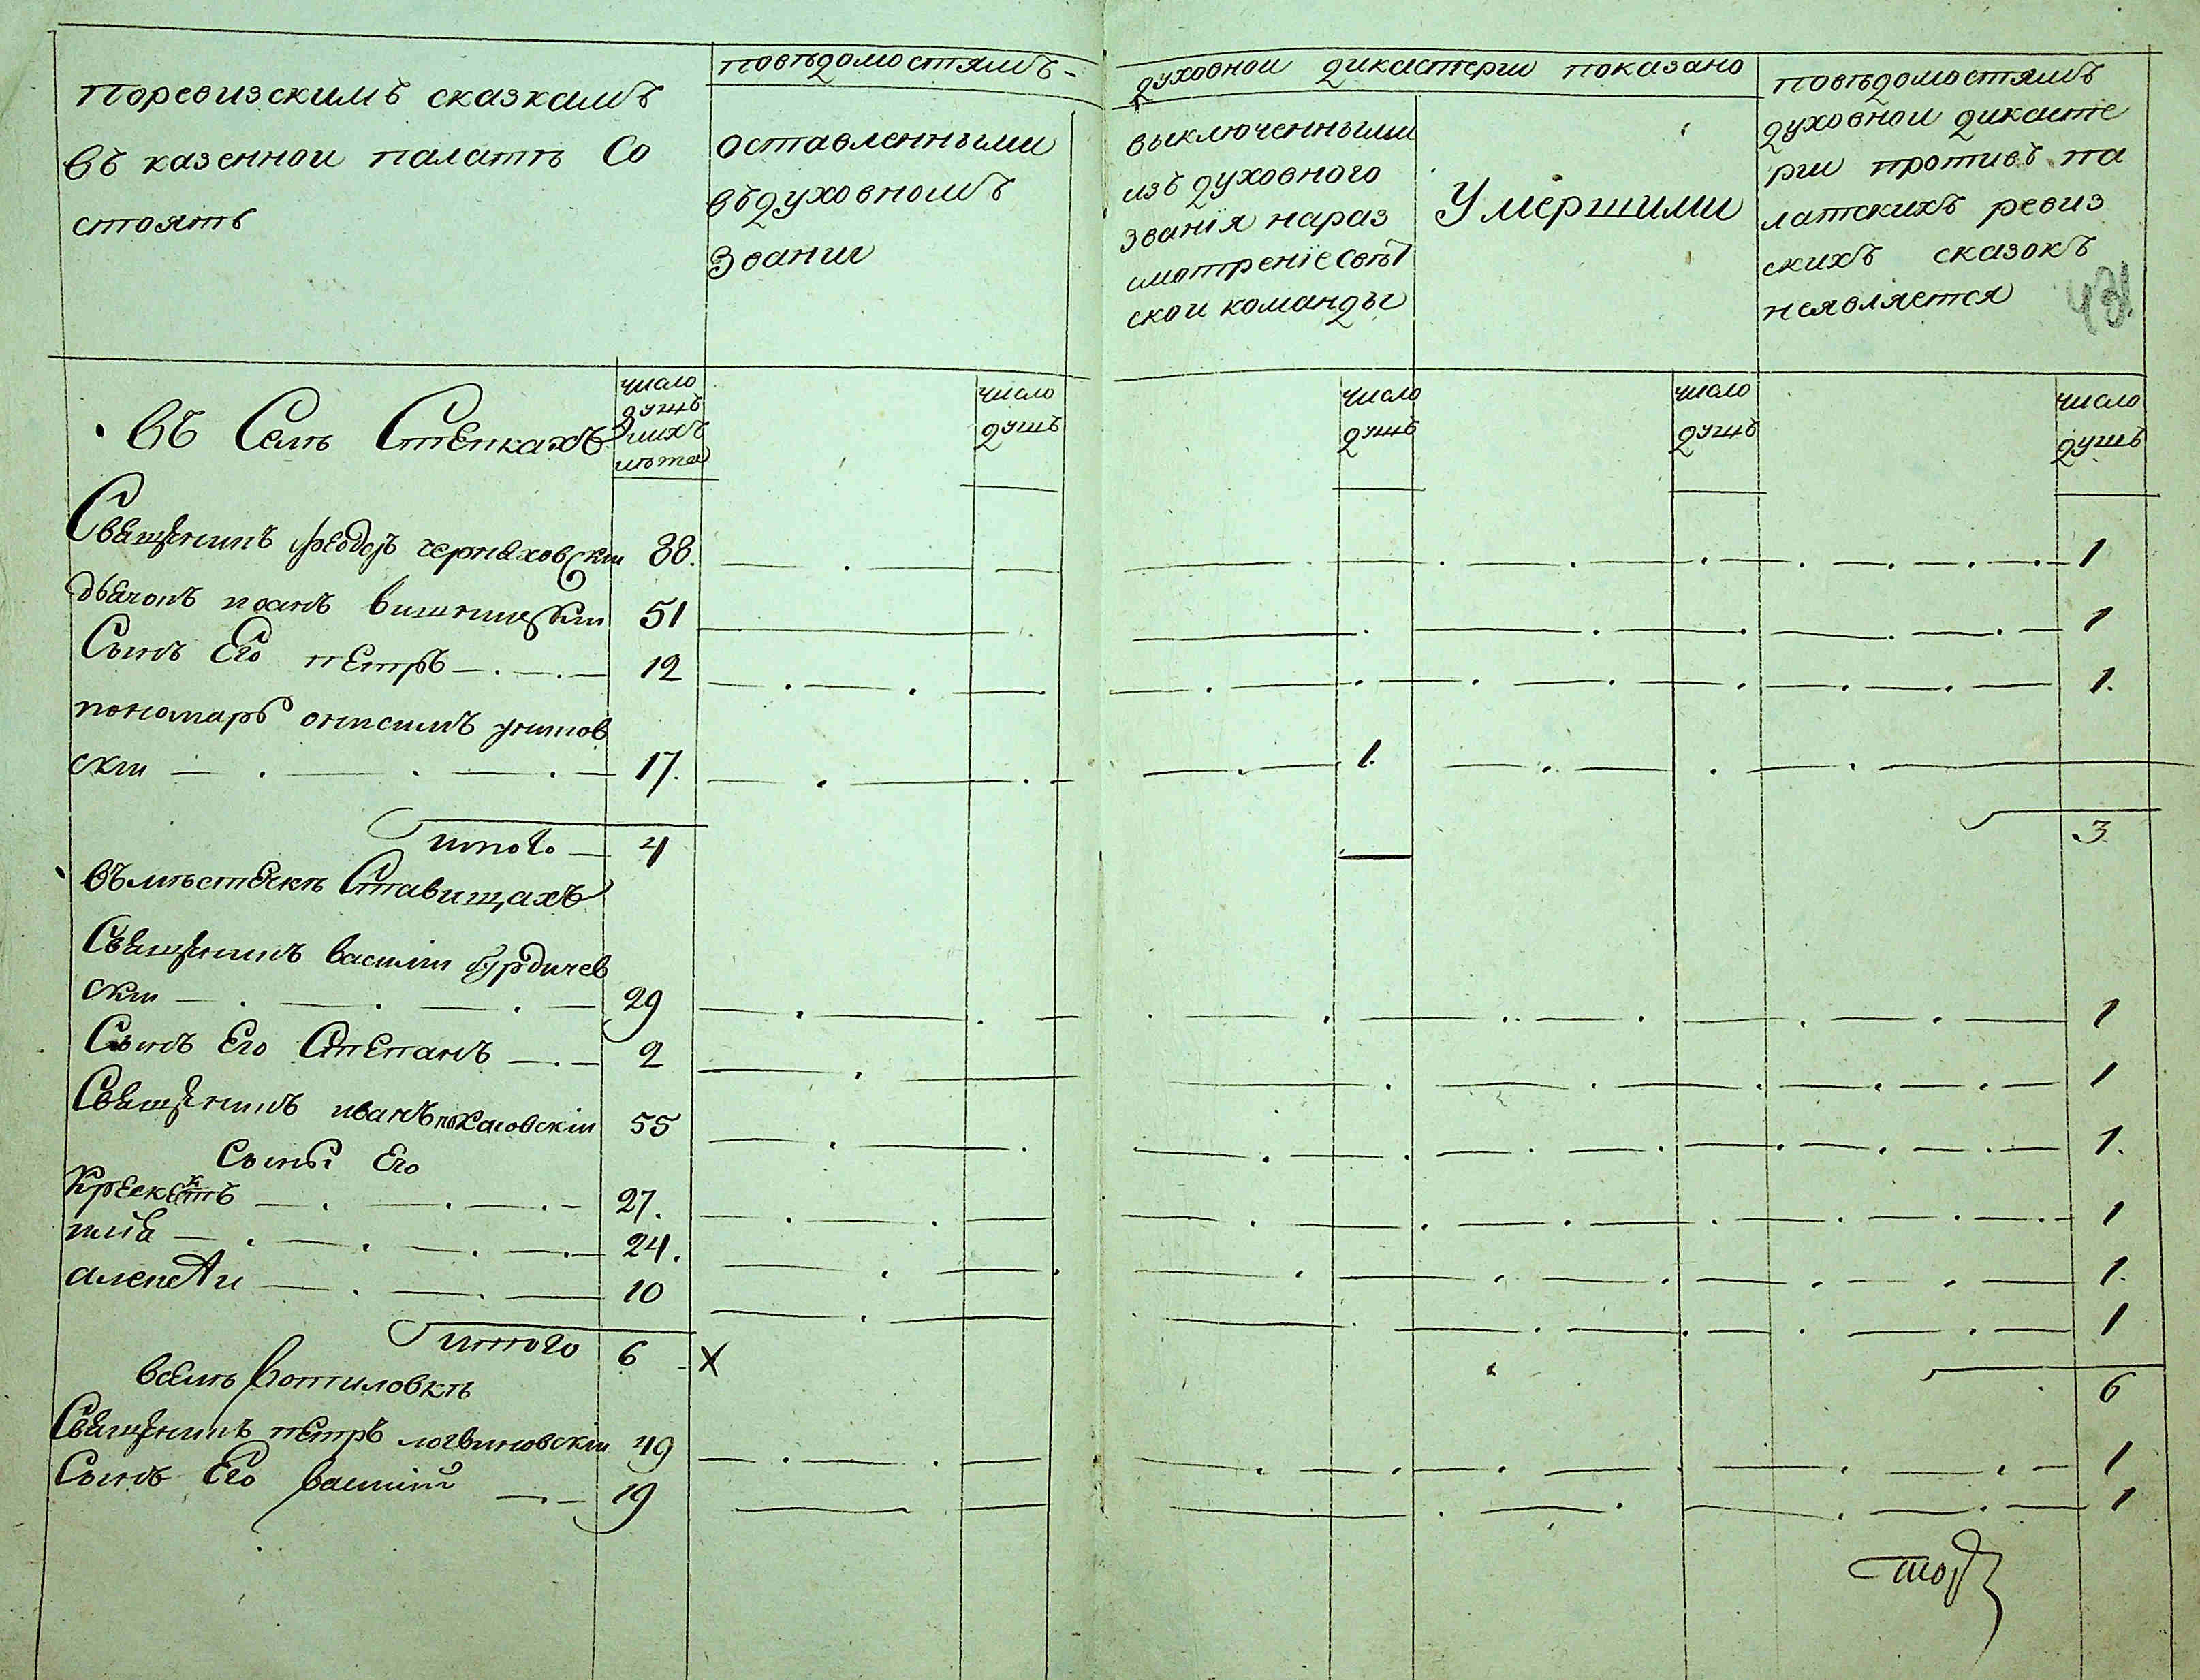 поревизскимъ сказкамъ
въ казенной палатѣ Со
стоятъ
повѣдомостямъ
оставленными
въ духовномъ
Звании
духовной дикастерии показано
выключенными
изъ духовного
званія нараз
смотреніе свѣт
ской команды
Умершими
повѣдомостямъ
духовной дикасте
рии противъ па
латскихъ ревиз
скихъ сказокъ
неявляется
число
душъ
лѣта
число
душъ
число
душъ
число
душъ
число
душъ
въ Селѣ Степкахъ
Священникъ феодоръ черняховски 88. 1
дьячокъ иоанъ вишницки 51 1
Сынъ Его петръ 12 1.
пономарь онисимъ
ски 17. 1.
итого 4 3
въместечкѣ Ставищахъ
Священникъ василии бурдичев
ски 29 1
Сынъ Его Степанъ 2 1
Священникъ иванъ 55 1.
Сыны Его
27. 1
илиа 24. 1.
алексѣи 10 1
итого 6 х 6
вселѣ вотиловкѣ
Священникъ петръ логвиновскіи 49 1
Сынъ Его василии 19 1